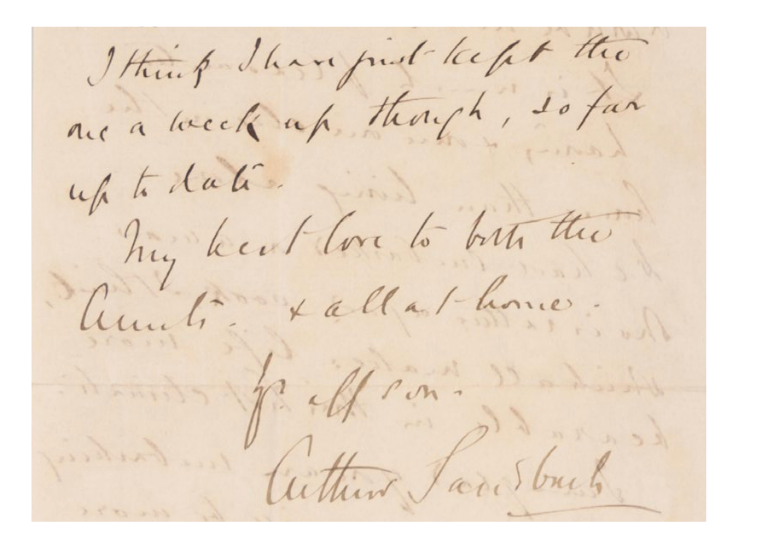 I think I have just kept the
one a week up though, so far
up to date.
My best love to both the
Aunts. & all at home.
Yr aff son.
Arthur Sandbach